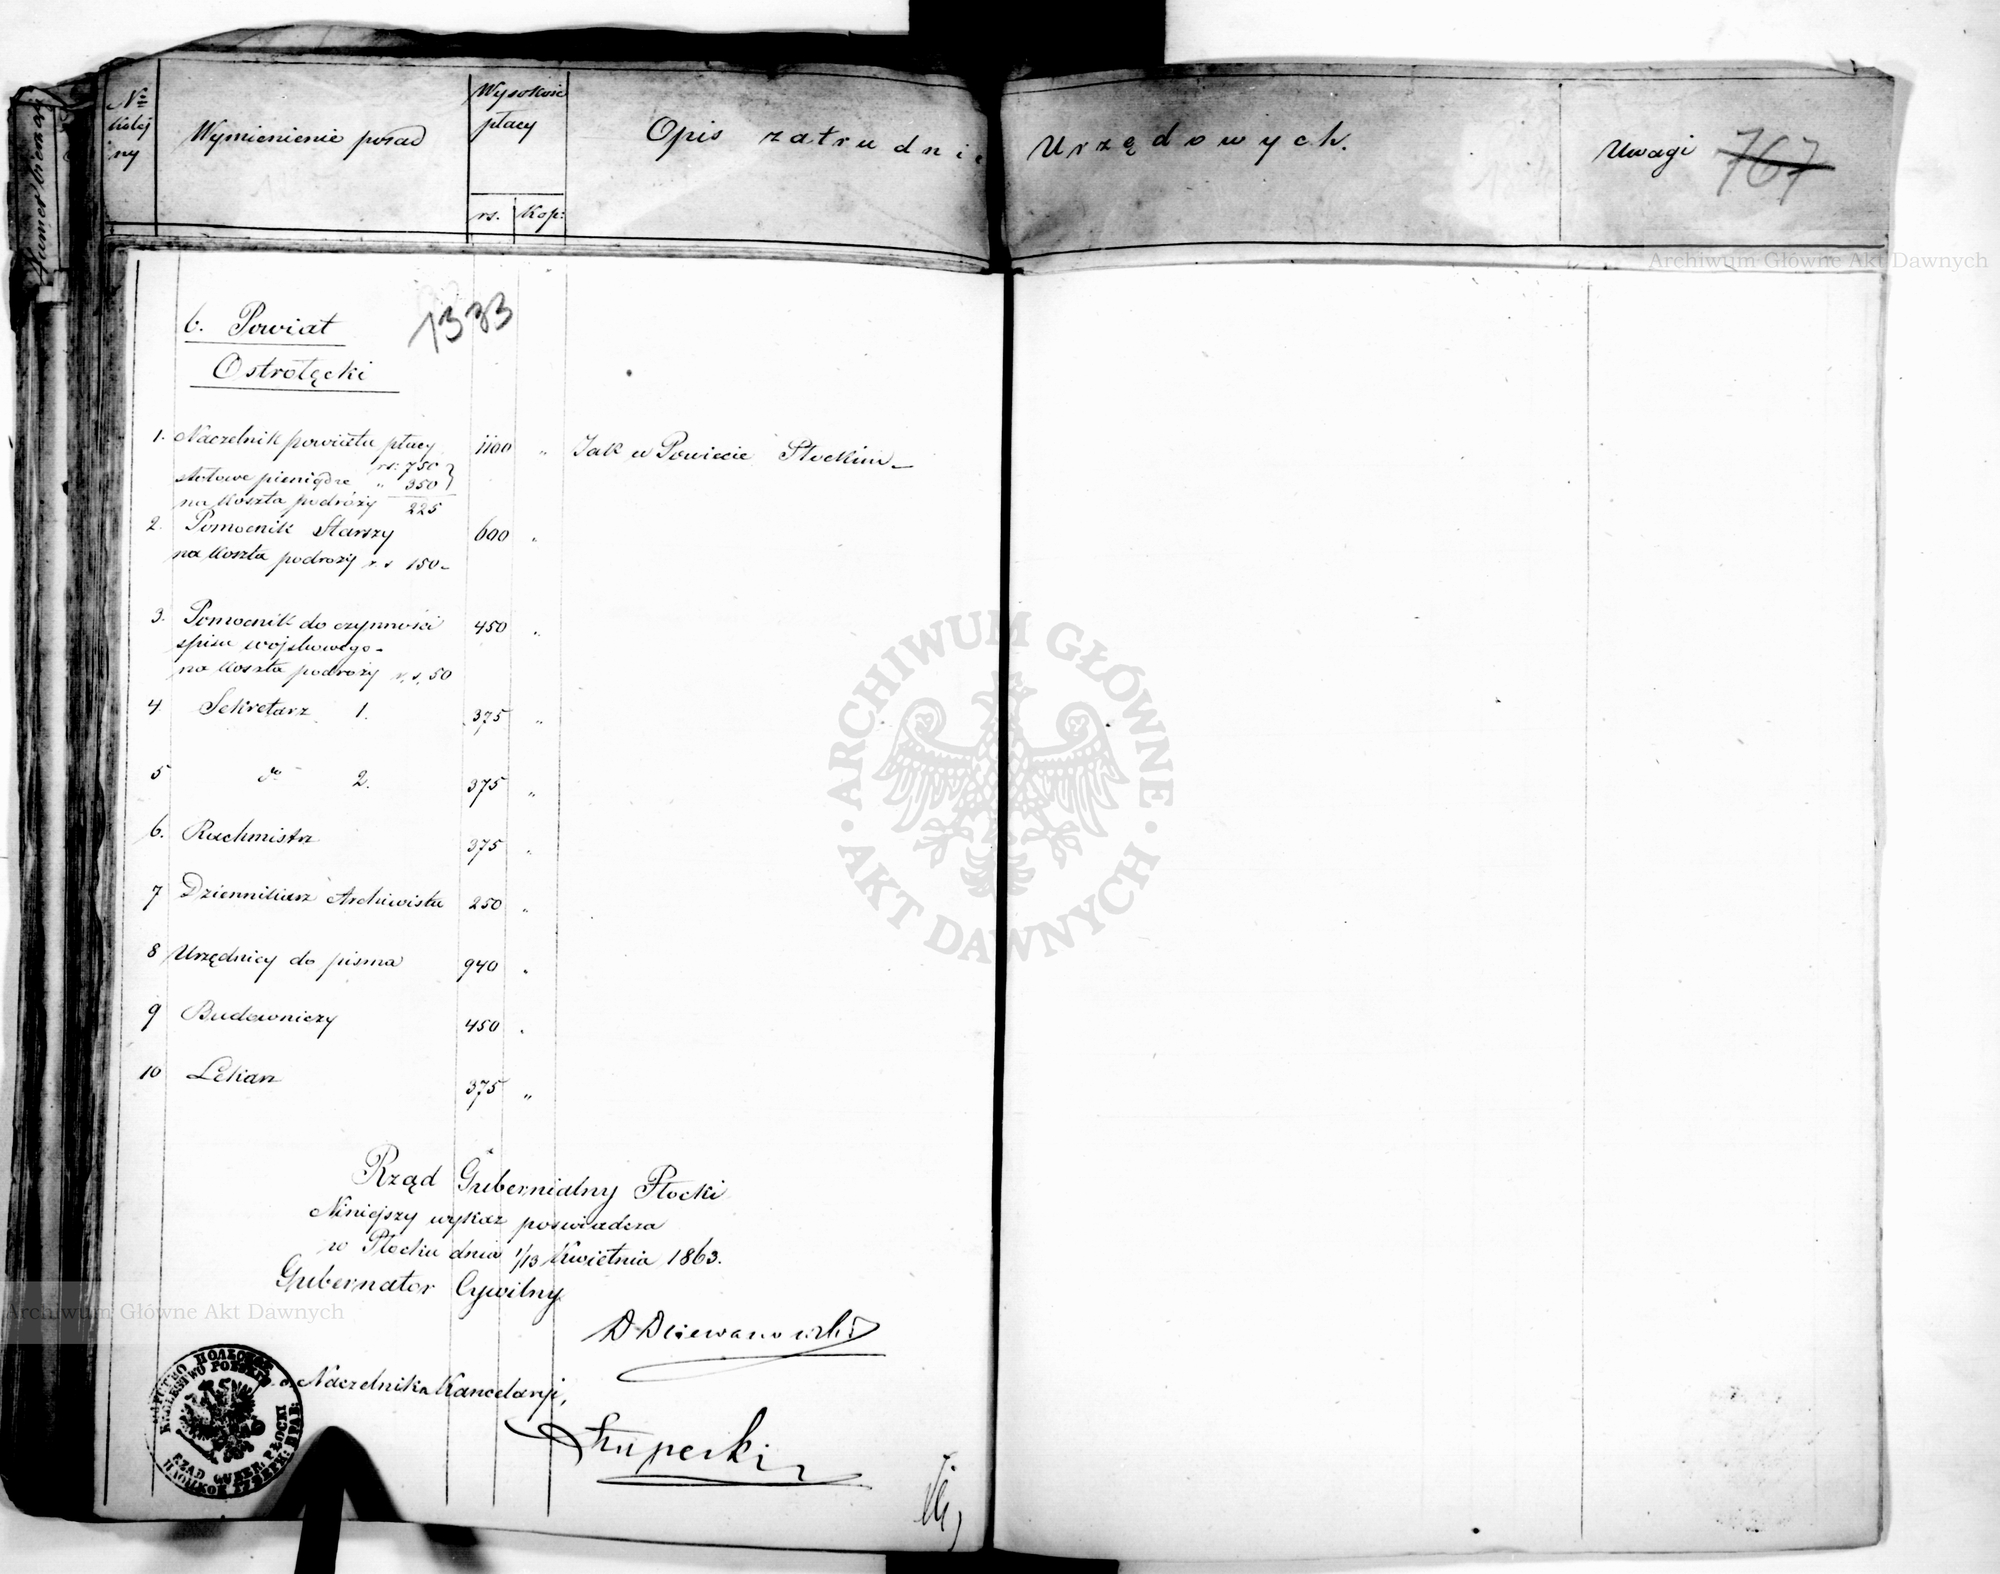 No
kolej
ny
Wymienienie posad
Wysokość
płacy
rs. Kop:
Opis zatrudnie
Urzędowych.
Uwagi
767
Numer bieżący
1333
6. Powiat
Ostrołęcki
1. Naczelnik powiatu płacy 1100 „ Jak w Powiecie Płockim
rs: 750
stołowe pieniądze „ 350
na koszta podróży 225
2. Pomocnik Starszy 600 „
na koszta podroży r s 150
3. Pomocnik do czynności 450 „
spisu wojskowego
na koszta podroży r. s. 50
4 Sekretarz 1. 375 „
5 do 2. 375 „
6. Rachmistrz 375 „
7 Dziennikarz Archiwista 250 „
8 Urzędnicy do pisma 940 „
9 Budowniczy 450 „
10 Lekarz 375 „
Rząd Gubernialny Płocki
Niniejszy wykaz poswiadcza
w Płocku dnia 1/13 Kwietnia 1863.
Gubernator Cywilny
D Dziewanowski
Naczelnika Kancelaryi,
KRÓLESTWO POLSKIE
RZĄD GUBER: PŁOCKI
Archiwum Główne Akt Dawnych
Archiwum Główne Akt Dawnych
ARCHIWUM GŁÓWNE
AKT DAWNYCH